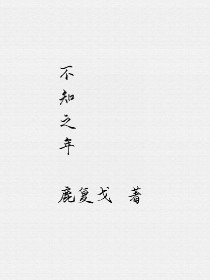 不知之年
鹿复戈 著